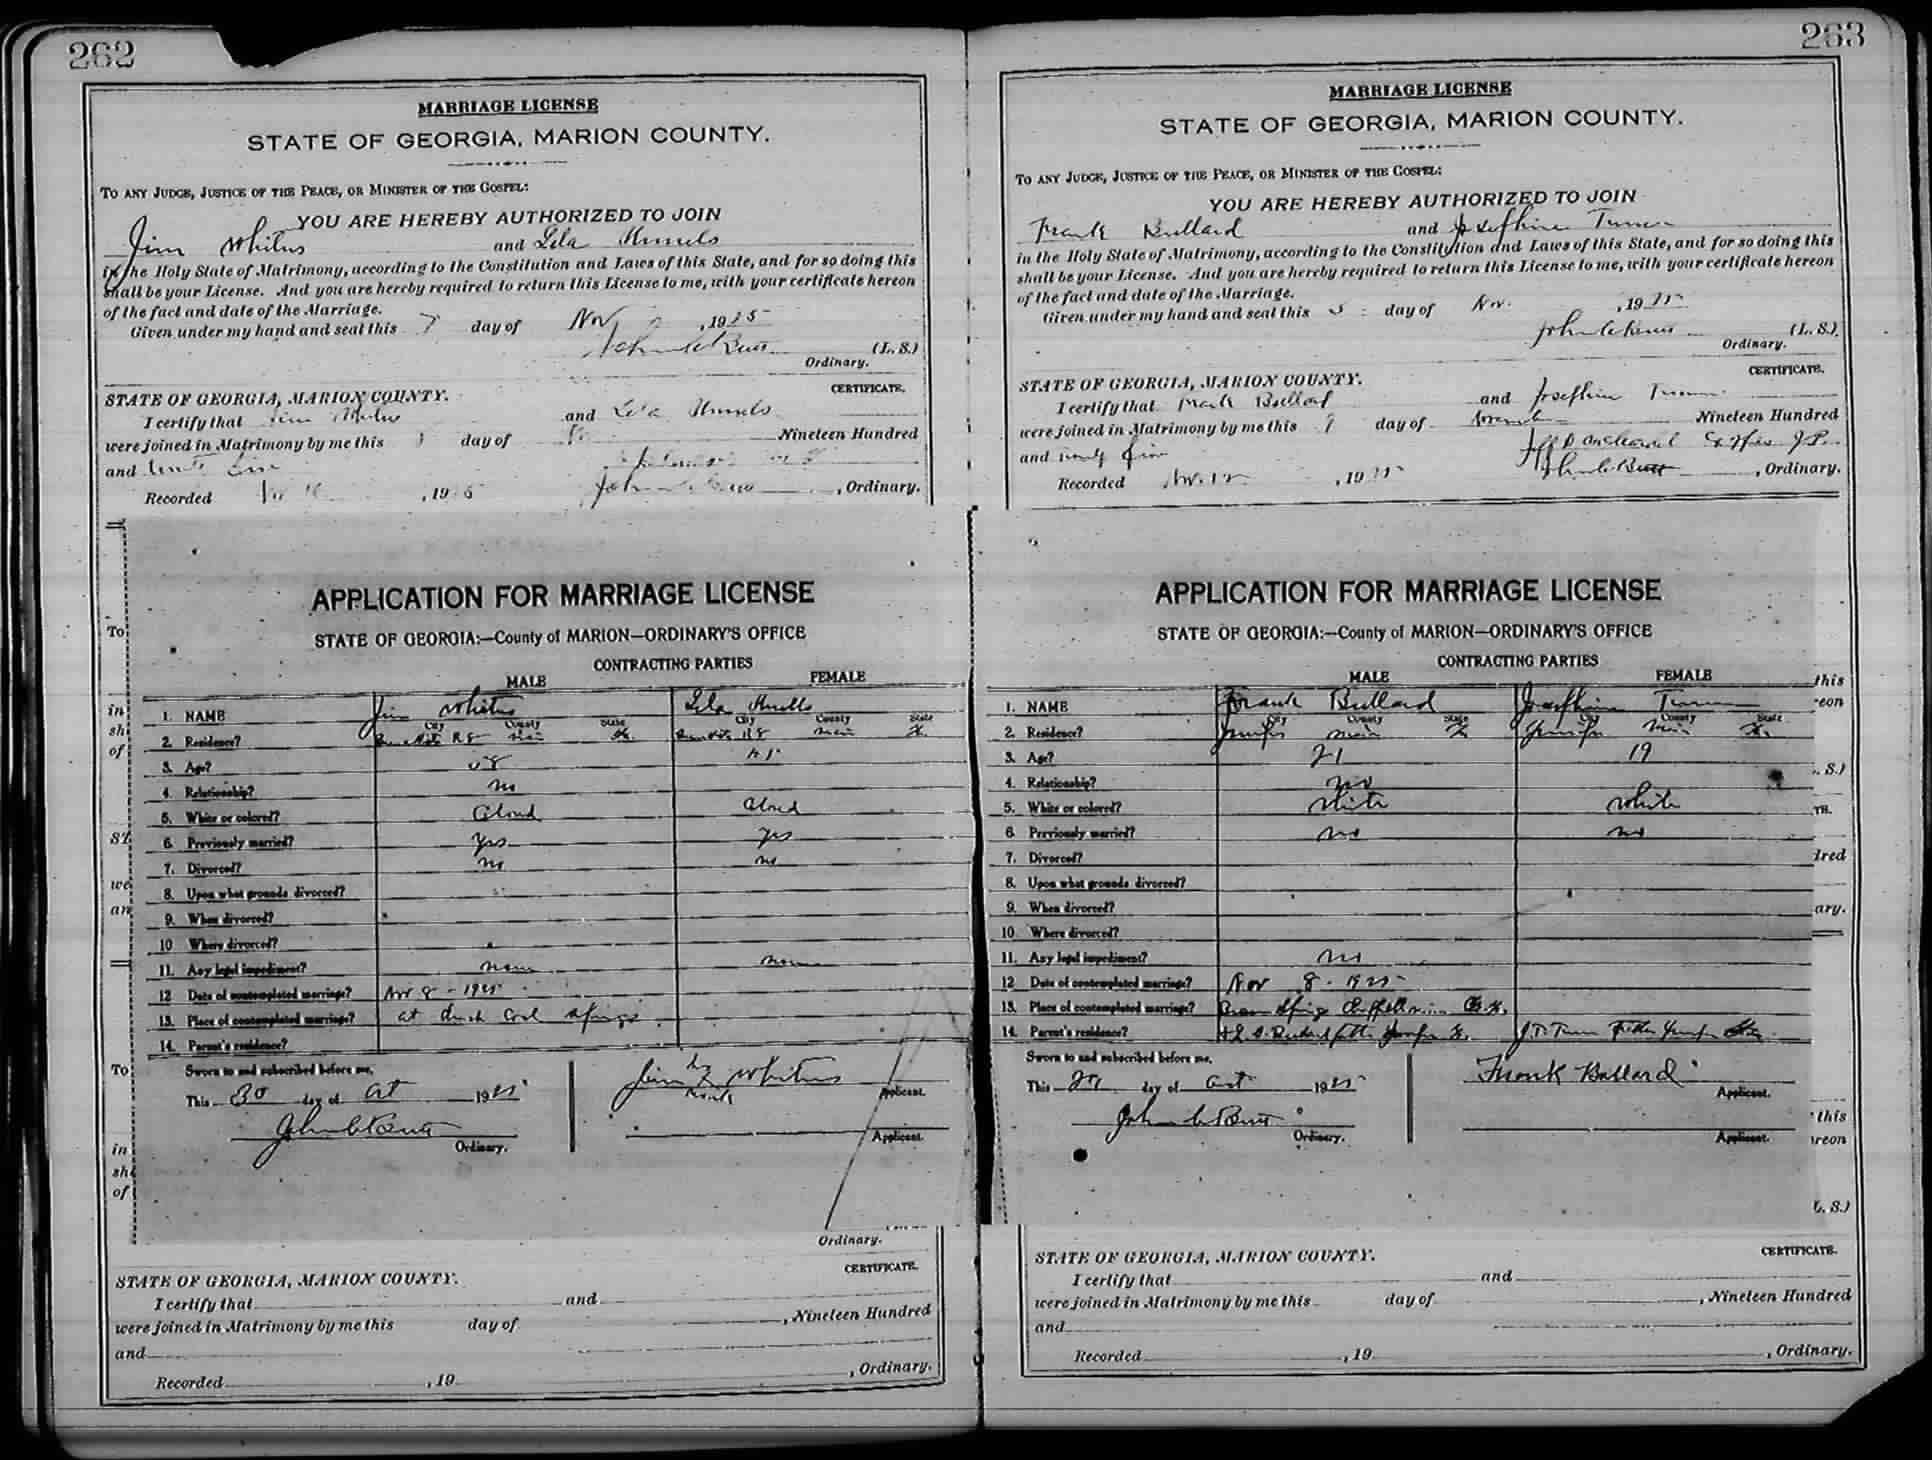 262
MARRIAGE LICENSE
STATE OF GEORGIA, MARION COUNTY.
TO ANY JUDGE, JUSTICE OF THE PEACE, OR MINISTER OF THE GOSPEL:
YOU ARE HEREBY AUTHORIZED TO JOIN
Jim Whitus and Lela
in the Holy State of Matrimony, according to the Constitution and Laws of this State, and for so doing this
shall be your License. And you are hereby required to return this License to me, with your certificate hereon
of the fact and date of the Marriage.
Given under my hand and seal this 7 day of Nov, 1925
John C Butt (L. S.)
Ordinary.
CERTIFICATE.
STATE OF GEORGIA, MARION COUNTY.
I certify that Jim Whitus and Lela
were joined in Matrimony by me this day of Nineteen Hundred
and
Recorded , 1925 John C Butt, Ordinary.
To
in
sh
of
ST
we
an
To
in
sh
of
APPLICATION FOR MARRIAGE LICENSE
STATE OF GEORGIA:—County of MARION—ORDINARY'S OFFICE
CONTRACTING PARTIES
MALE FEMALE
1. NAME Jim Whitus Lela
City County State City County State
2. Residence? R 8
3. Age?
4. Relationship? no
5. White or colored? Colored Colored
6. Previously married? Yes yes
7. Divorced? no no
8. Upon what grounds divorced?
9. When divorced?
10 Where divorced?
11. Any legal impediment? none none
12 Date of contemplated marriage? Nov 8 - 1925
13. Place of contemplated marriage? at
14. Parent's residence?
Sworn to and subscribed before me,
This 30 day of Oct 1925
Jim his X mark Whitus
Applicant.
John C Butt
Ordinary.
Applicant.
Ordinary.
CERTIFICATE.
STATE OF GEORGIA, MARION COUNTY.
I certify that and
were joined in Matrimony by me this day of , Nineteen Hundred
and
Recorded , 19 , Ordinary.
263
MARRIAGE LICENSE
STATE OF GEORGIA, MARION COUNTY.
TO ANY JUDGE, JUSTICE OF THE PEACE, OR MINISTER OF THE GOSPEL:
YOU ARE HEREBY AUTHORIZED TO JOIN
Frank Bullard and Josephine Turner
in the Holy State of Matrimony, according to the Constitution and Laws of this State, and for so doing this
shall be your License. And you are hereby required to return this License to me, with your certificate hereon
of the fact and date of the Marriage.
Given under my hand and seal this 5 day of Nov. , 1925
John C Butt (L. S.)
Ordinary.
CERTIFICATE.
STATE OF GEORGIA, MARION COUNTY.
I certify that Frank Bullard and Josephine Turner
were joined in Matrimony by me this day of November Nineteen Hundred
and twenty five
John C Butt, Ordinary.
Recorded Nov. 12 , 1925
APPLICATION FOR MARRIAGE LICENSE
STATE OF GEORGIA:—County of MARION—ORDINARY'S OFFICE
CONTRACTING PARTIES
MALE FEMALE
1. NAME Frank Bullard Josephine Turner
City County State City County State
2. Residence?
3. Age? 21 19
4. Relationship? no
5. White or colored? White White
6 Previously married? no no
7. Divorced?
8. Upon what grounds divorced?
9. When divorced?
10. Where divorced?
11. Any legal impediment? no
12 Date of contemplated marriage? Nov 8 - 1925
13. Place of contemplated marriage?
14. Parent's residence? J. T. Turner
Sworn to and subscribed before me,
This day of Oct 1925
Frank Bullard
Applicant.
John C Butt
Ordinary.
Applicant.
this
eon
. S.)
TH.
dred
ary.
this
reon
L. S.)
CERTIFICATE.
STATE OF GEORGIA, MARION COUNTY.
I certify that and
were joined in Matrimony by me this day of , Nineteen Hundred
and
Recorded , 19 , Ordinary.